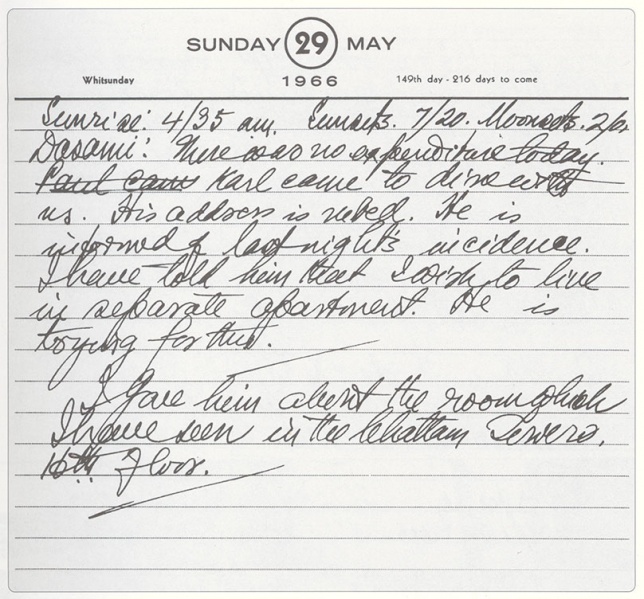 SUNDAY 29 MAY
Whitsunday 1966 149th day - 216 days to come
Sunrise: 4/35 am. Sunsets. 7/20. Moonsets. 2/
Dasami: There was no expenditure today.
Paul came Karl came to dine with
us. His address is noted. He is
informed of last night's incidence.
I have told him that I wish to live
in separate apartment. He is
trying for this.
I gave him about the room which
I have seen in the Chattam Towers.
16th Floor.